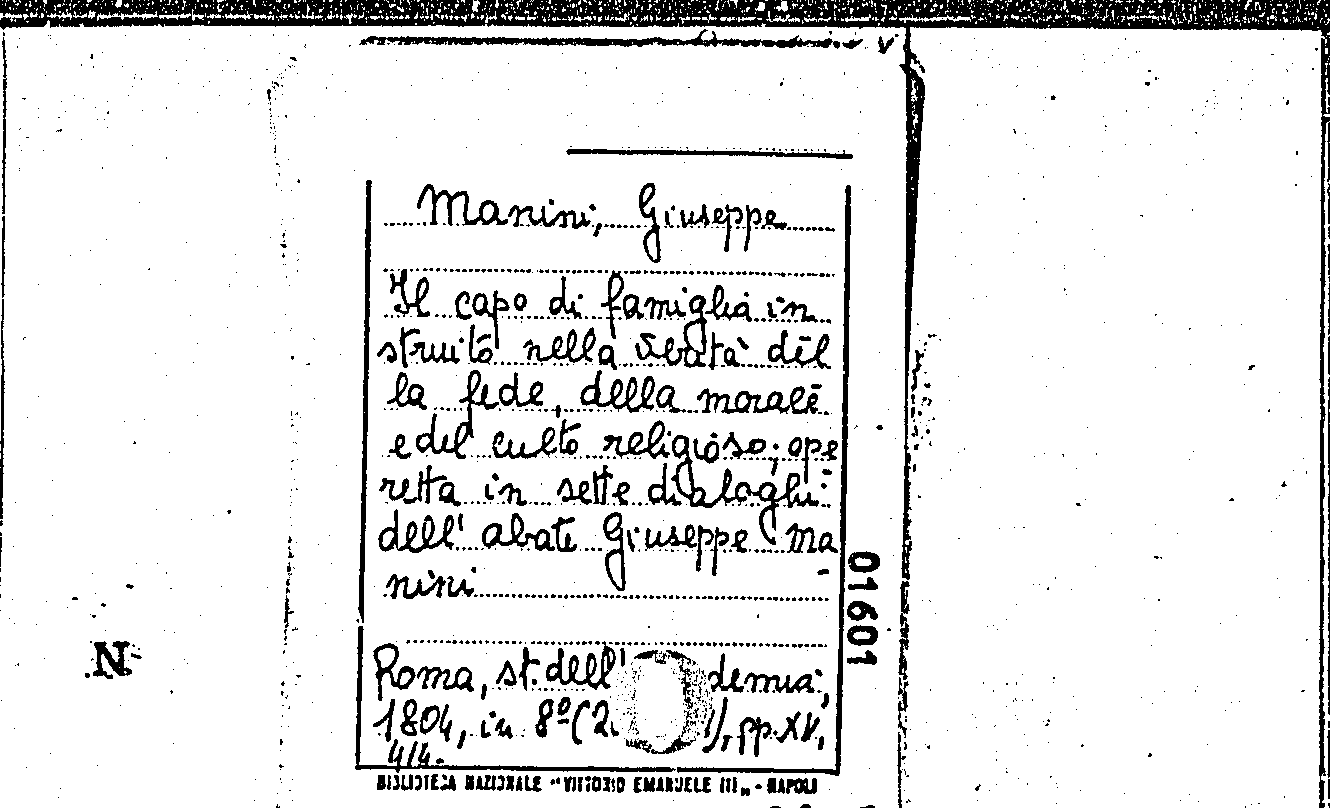 Manini, Giuseppe
Il capo di famiglia in
struito nella verità del
la fede, della morale
e del culto religioso; ope
retta in sette dialoghi
dell' abate Giuseppe Ma-
nini
Roma, st. dell' demia,
1804, in 8º (2. ), pp. XV,
414.
BIBLIOTECA NAZIONALE "VITTORIO EMANUELE III" - NAPOLI
01601
N